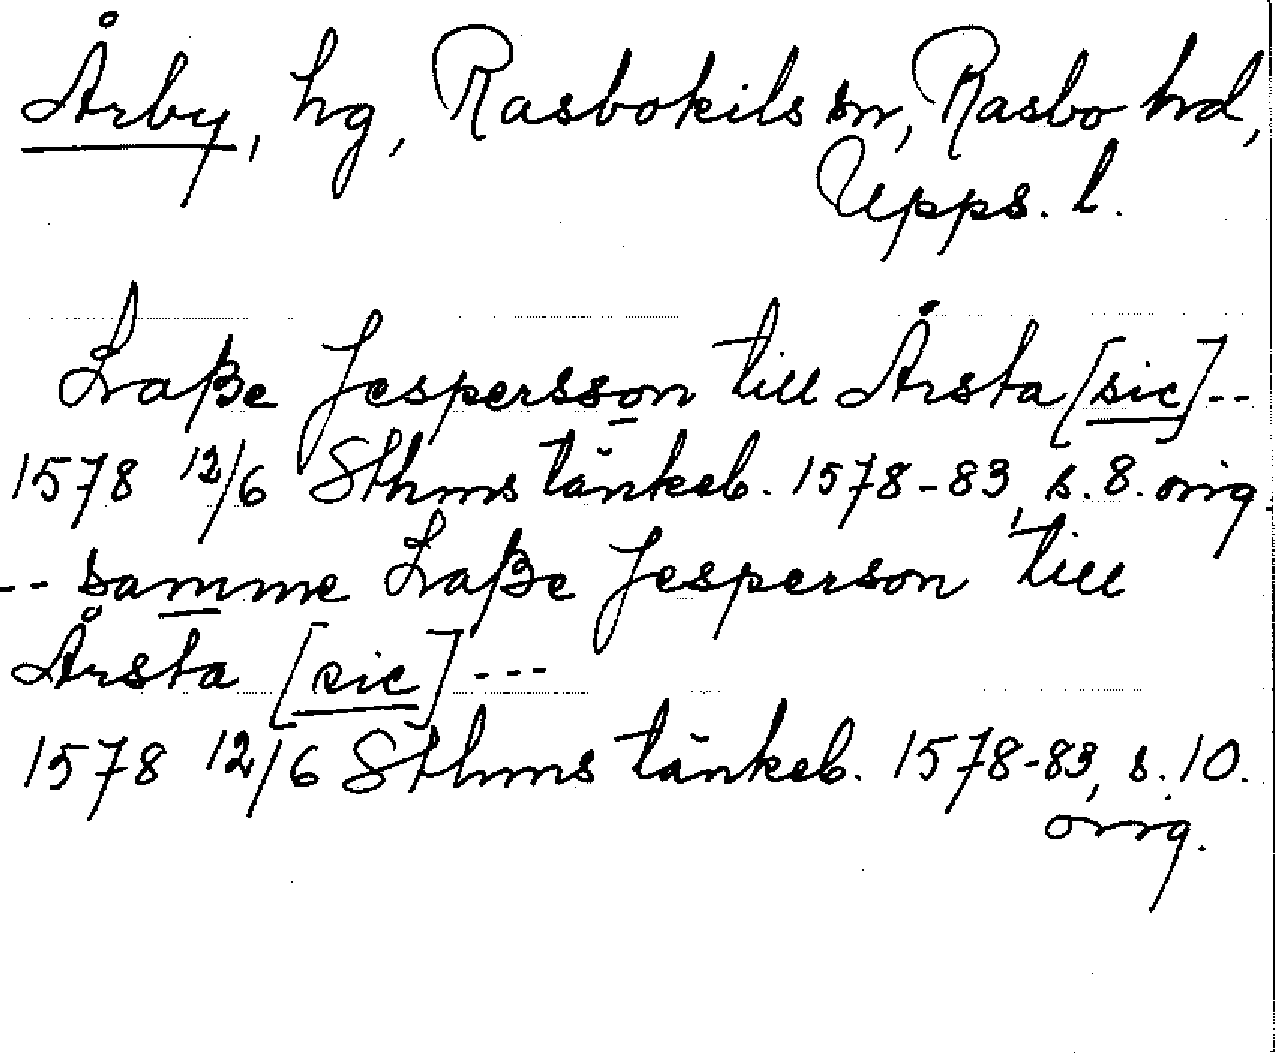 Årby, hg, Rasbokils sn, Rasbo hd,
Upps. l.
Laße Jespersson till Årsta [sic]--
1578 12/6 Sthms tänkeb. 1578-83, s. 8. orig.
-- samme Laße Jesperson till
Årsta [sic] ---
1578 12/6 Sthms tänkeb. 1578-83, s. 10.
orig.